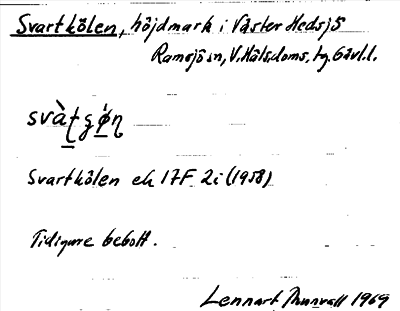 Svartkölen, höjdmark i Väster Hedsjö
Ramsjö sn, V. Häls. doms, tg. Gävl. l.
Svartkölen ek 17F 2i (1958)
Tidigare bebott.
Lennart 1969